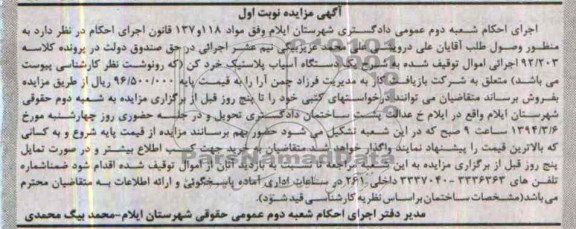 آگهی مزایده نوبت اول
اجرای احکام شعبه دوم عمومی دادگستری شهرستان ایلام وفق مواد ۱۱۸و۱۳۷ قانون اجرای احکام در نظر دارد به
منظور وصول طلب آقایان علی درویشی علی محمد عزیزبیگی نیم عشر اجرائی در حق صندوق دولت در پرونده کلاسه
۹۲/۲۰۳ اجرائی اموال توقیف شده به شرح دستگاه آسیاب پلاستیک خرد کن (که رونوشت نظر کارشناسی پیوست
می باشد) متعلق به شرکت بازیافت کار به مدیریت فرزاد چمن آرا را به قیمت پایه ۹۶/۵۰۰/۰۰۰ ریال از طریق مزایده
بفروش برساند متقاضیان می توانند درخواستهای کتبی خود را تا پنج روز قبل از برگزاری مزایده به شعبه دوم حقوقی
شهرستان ایلام واقع در ایلام خ عدالت پشت ساختمان دادگستری تحویل و در جلسه حضوری روز چهارشنبه مورخ
۱۳۹۴/۳/۶ ساعت ۹ صبح که در این شعبه تشکیل می شود حضور بهم برسانند مزایده از قیمت پایه شروع و به کسانی
که بالاترین قیمت را پیشنهاد نمایند واگذار خواهد شد متقاضیان خرید جهت کسب اطلاع بیشتر و در صورت تمایل
پنج روز قبل از برگزاری مزایده به این مراجعه تا نسبت به بازدید آنان از اموال توقیف شده اقدام شود ضمنا شماره
تلفن های ۳۳۳۶۳۶۳ - ۳۳۳۷۰۴۰ داخلی ۲۶۱ در ساعات اداری آماده پاسخگوئی و ارائه اطلاعات به متقاضیان محترم
می باشد(مشخصات ساختمان براساس نظریه کارشناسی قید شود).
مدیر دفتر اجرای احکام شعبه دوم عمومی حقوقی شهرستان ایلام-محمد بیگ محمدی
ParsNamadData